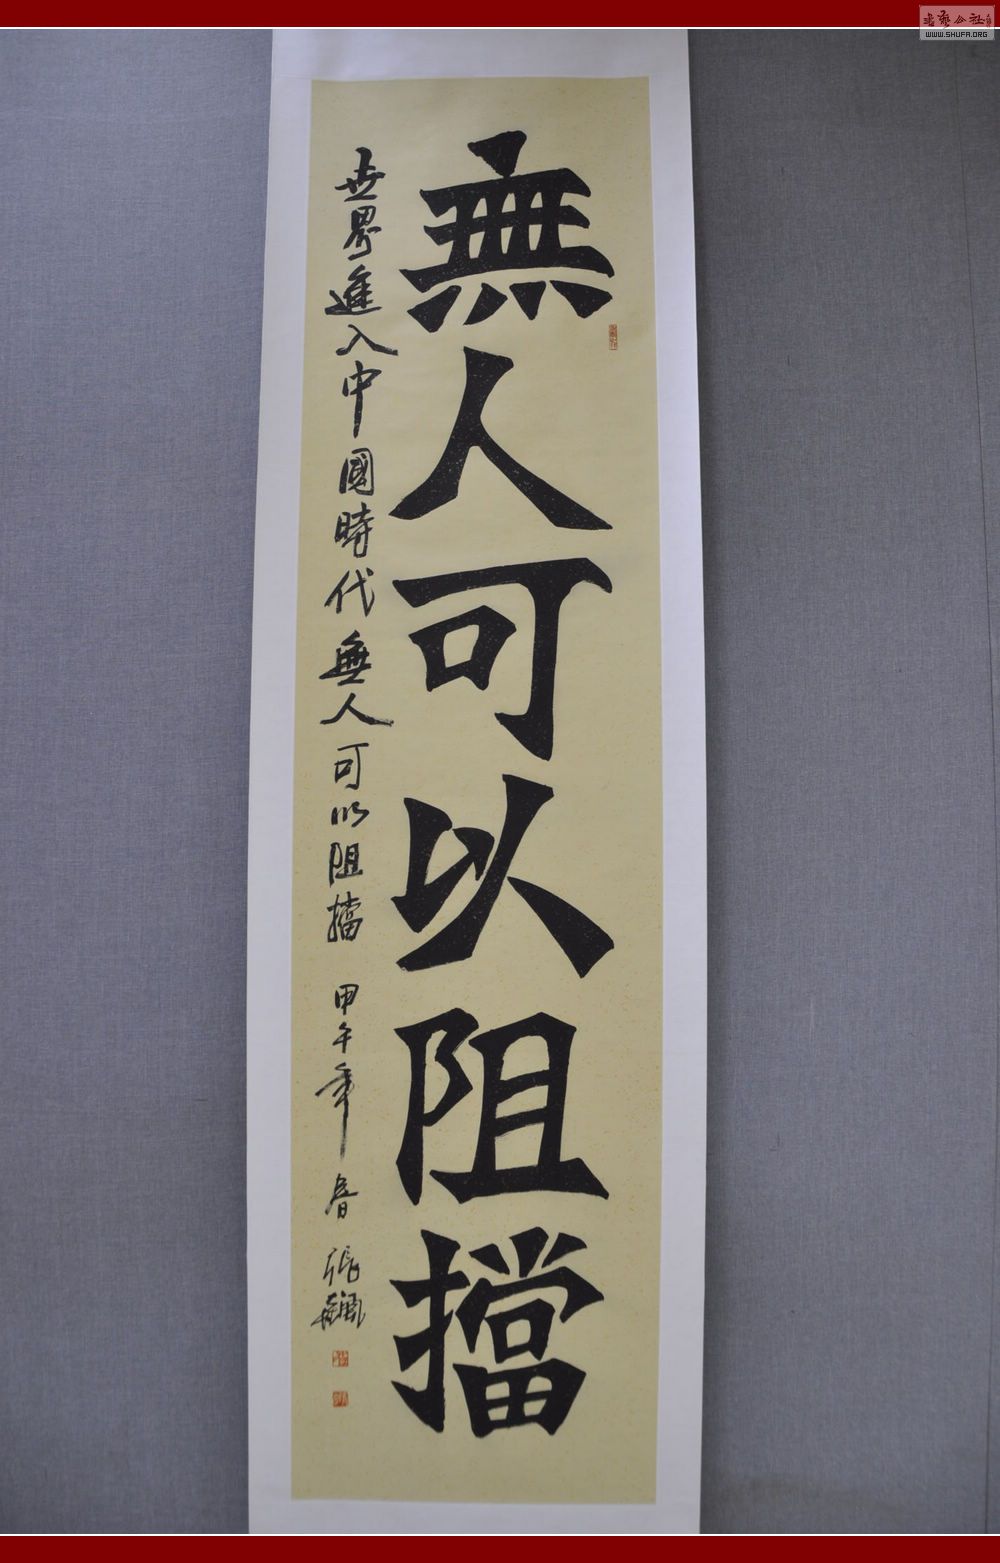 無人可以阻擋
世界進入中國時代無人可以阻擋 甲午年春 張飆
書藝公社
WWW.SHUFA.ORG